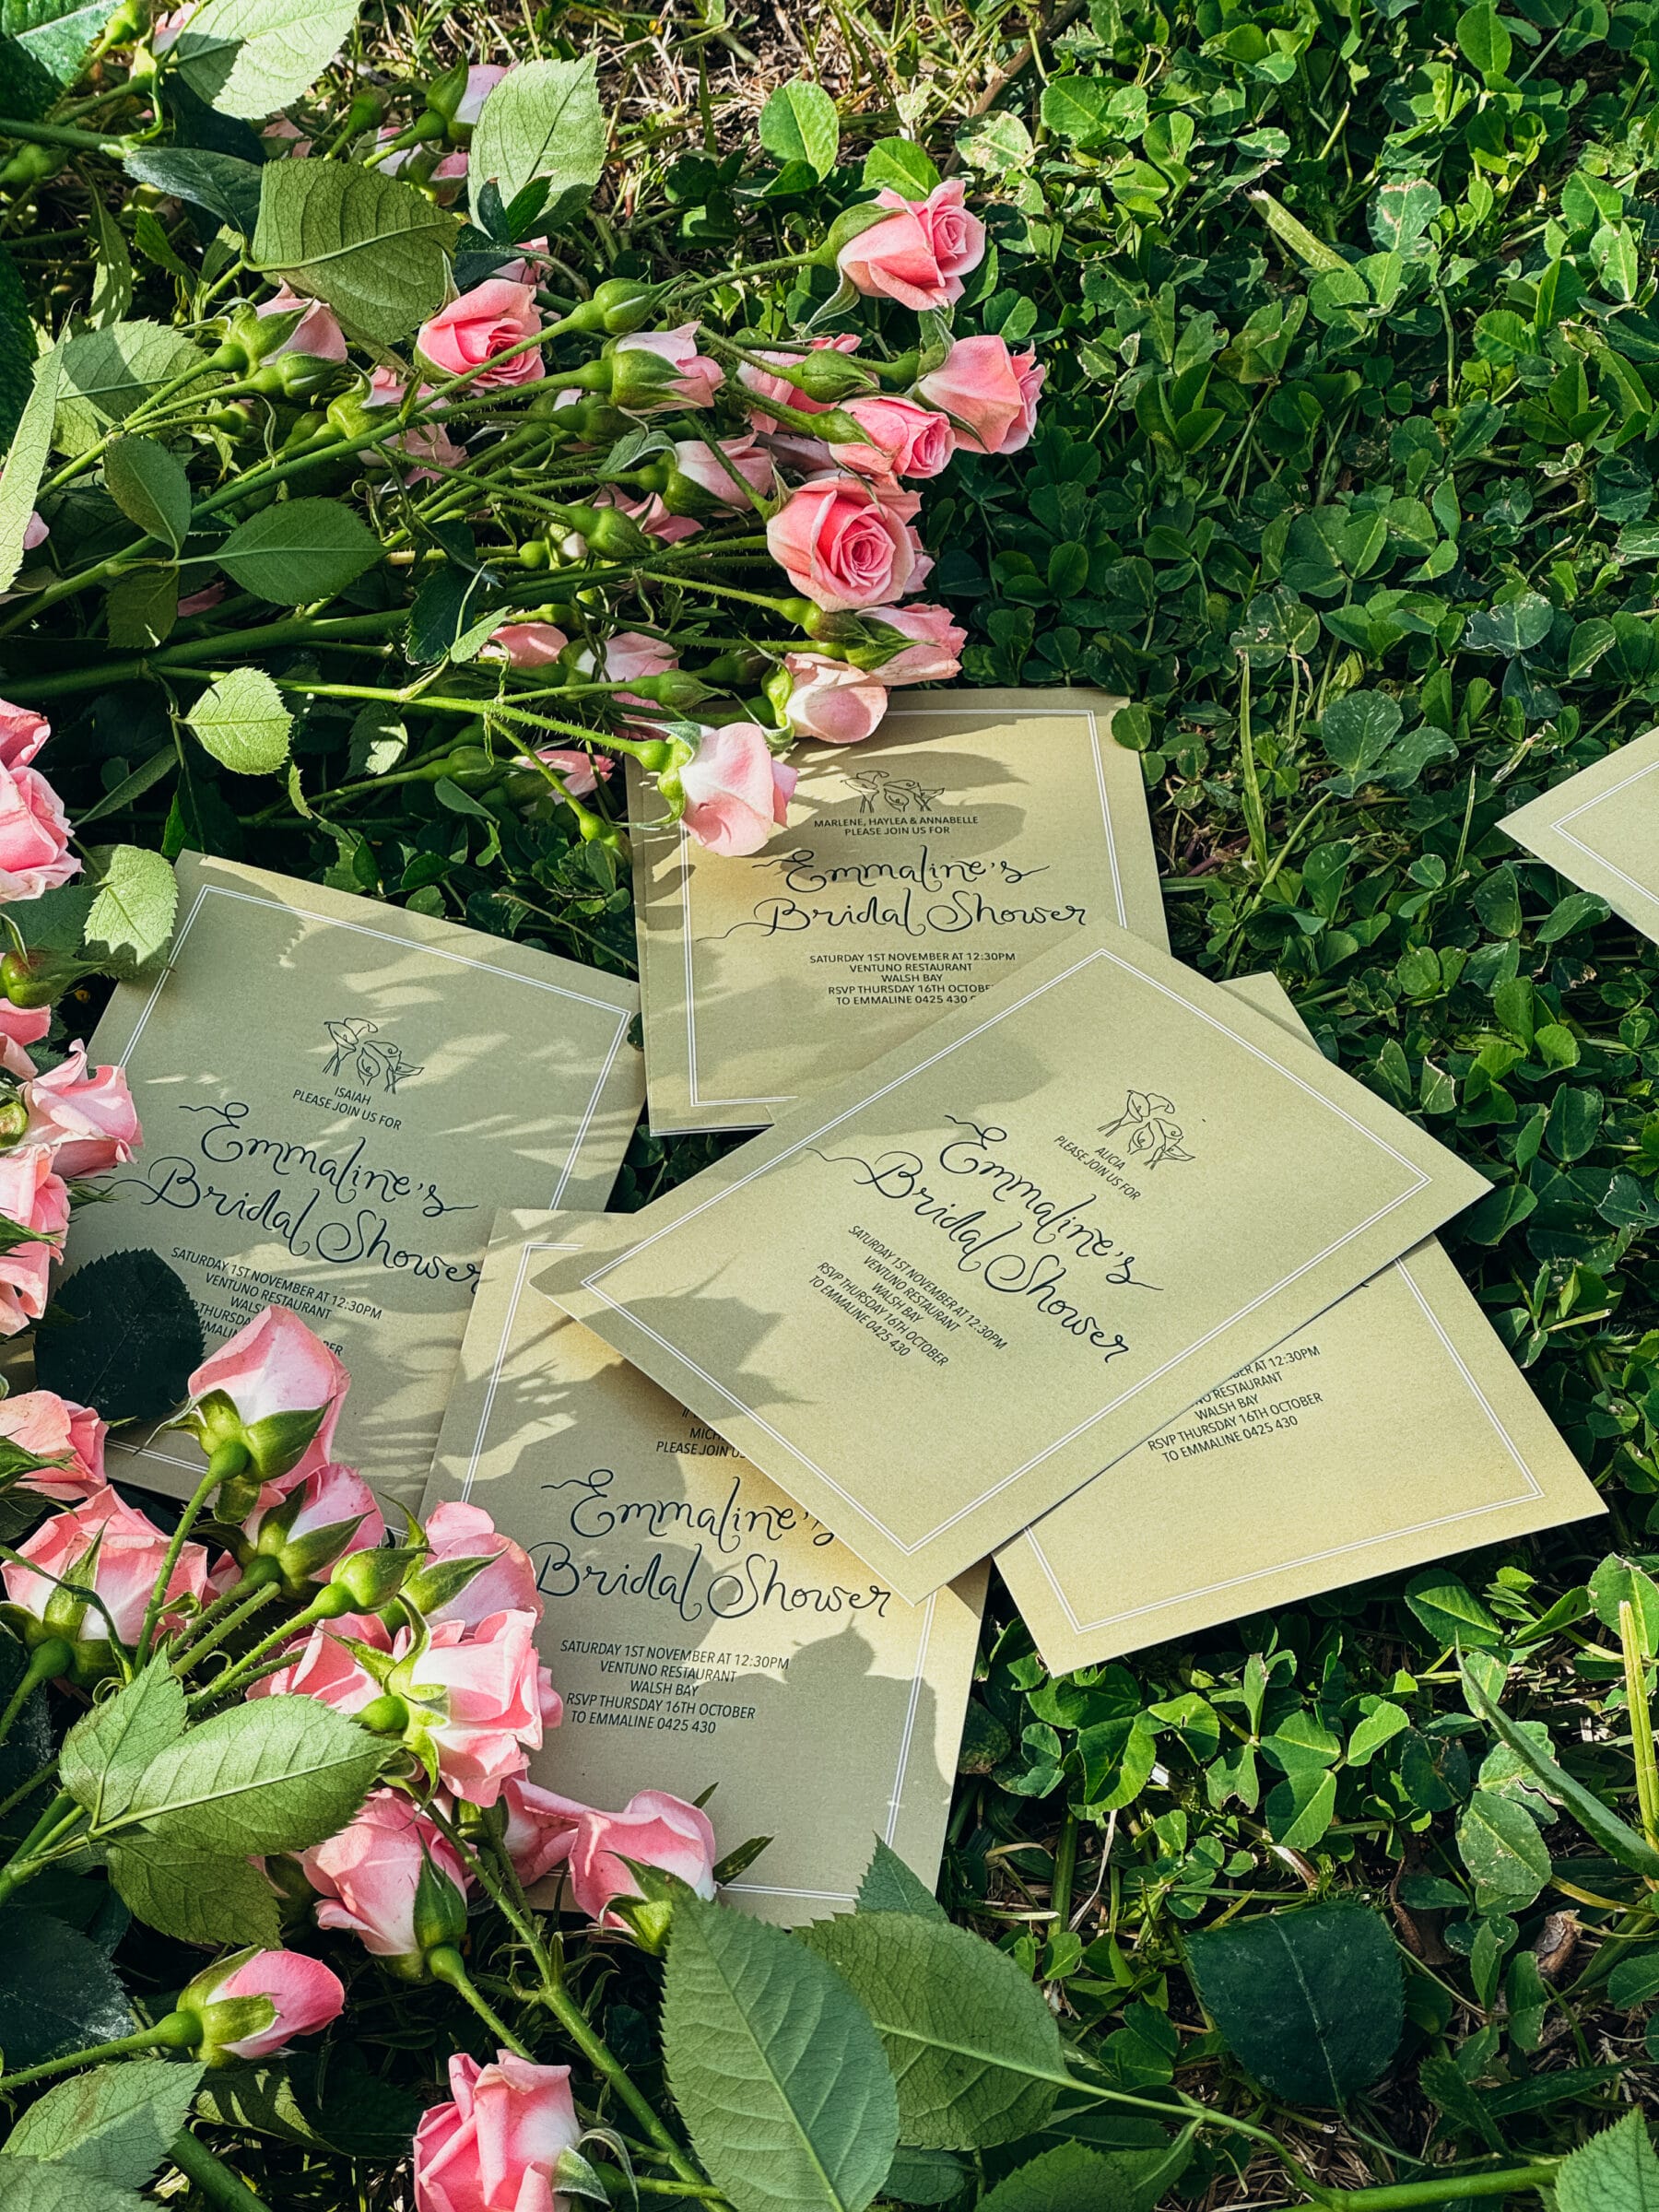 MARLENE, HAYLEA & ANNABELLE
PLEASE JOIN US FOR
Emmaline's
Bridal Shower
SATURDAY 1ST NOVEMBER AT 12:30PM
VENTUNO RESTAURANT
WALSH BAY
RSVP THURSDAY 16TH OCTOBE
TO EMMALINE 0425 430
ISAIAH
PLEASE JOIN US FOR
Emmaline's
Bridal Shower
SATURDAY 1ST NOVEMBER AT 12:30PM
VENTUNO RESTAURANT
WALS
THURSDA
BER
MMALIN
ALICIA
PLEASE JOIN US FOR
Emmaline's
Bridal Shower
SATURDAY 1ST NOVEMBER AT 12:30PM
VENTUNO RESTAURANT
WALSH BAY
RSVP THURSDAY 16TH OCTOBER
TO EMMALINE 0425 430
MICH
PLEASE JOIN U
Emmaline's
Bridal Shower
SATURDAY 1ST NOVEMBER AT 12:30PM
VENTUNO RESTAURANT
WALSH BAY
RSVP THURSDAY 16TH OCTOBER
TO EMMALINE 0425 430
BER AT 12:30PM
NO RESTAURANT
WALSH BAY
RSVP THURSDAY 16TH OCTOBER
TO EMMALINE 0425 430